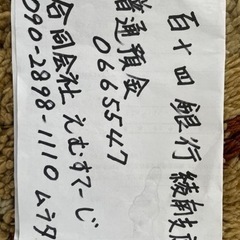 百十四銀行 綾南支店
普通預金
0665547
合同会社 えむすてーじ
090-2898-1110 ムラタ